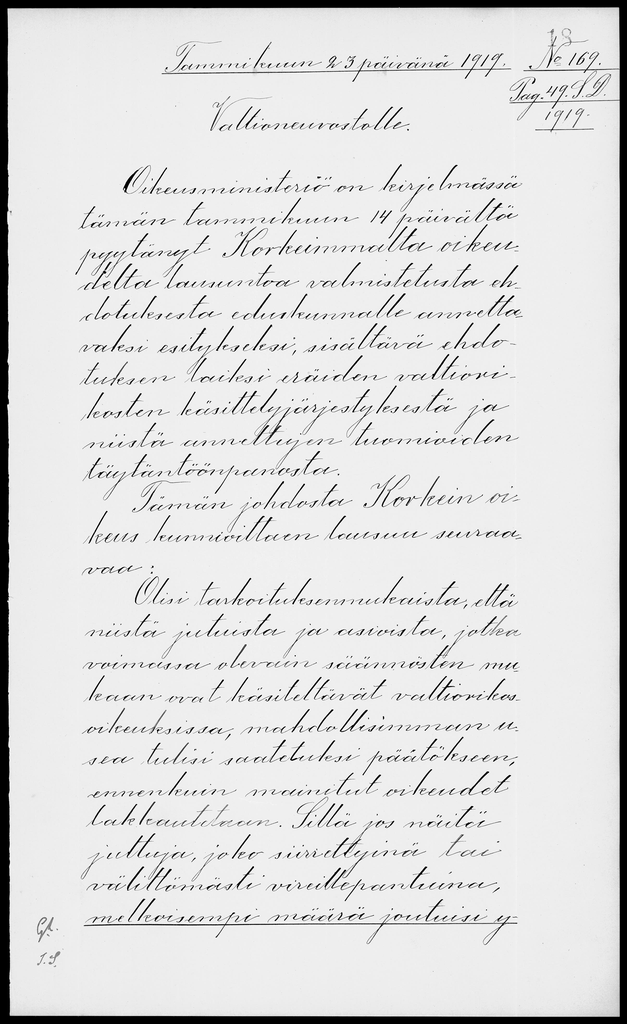 18
Tammikuun 23 päivänä 1919.
No 169.
Pag. 49. S.D.
1919.
Valtioneuvostolle.
Oikeusministeriö on kirjelmässä
tämän tammikuun 14 päivältä
pyytänyt Korkeimmalta oikeu-
delta lausuntoa valmistetusta eh-
dotuksesta eduskunnalle annetta-
vaksi esitykseksi, sisältävä ehdo-
tuksen laiksi eräiden valtiori-
kosten käsittelyjärjestyksestä ja
niistä annettujen tuomioiden
täytäntöönpanosta.
Tämän johdosta Korkein oi-
keus kunnioittaen lausuu seuraa-
vaa:
Olisi tarkoituksenmukaista, että
niistä jutuista ja asioista, jotka
voimassa olevain säännösten mu-
kaan ovat käsiteltävät valtiorikos-
oikeuksissa, mahdollisimman u-
sea tulisi saatetuksi päätökseen,
ennenkuin mainitut oikeudet
lakkautetaan. Sillä jos näitä
juttuja, joko siirrettyinä tai
välittömästi vireillepantuina,
melkoisempi määrä joutuisi y-
I.S.